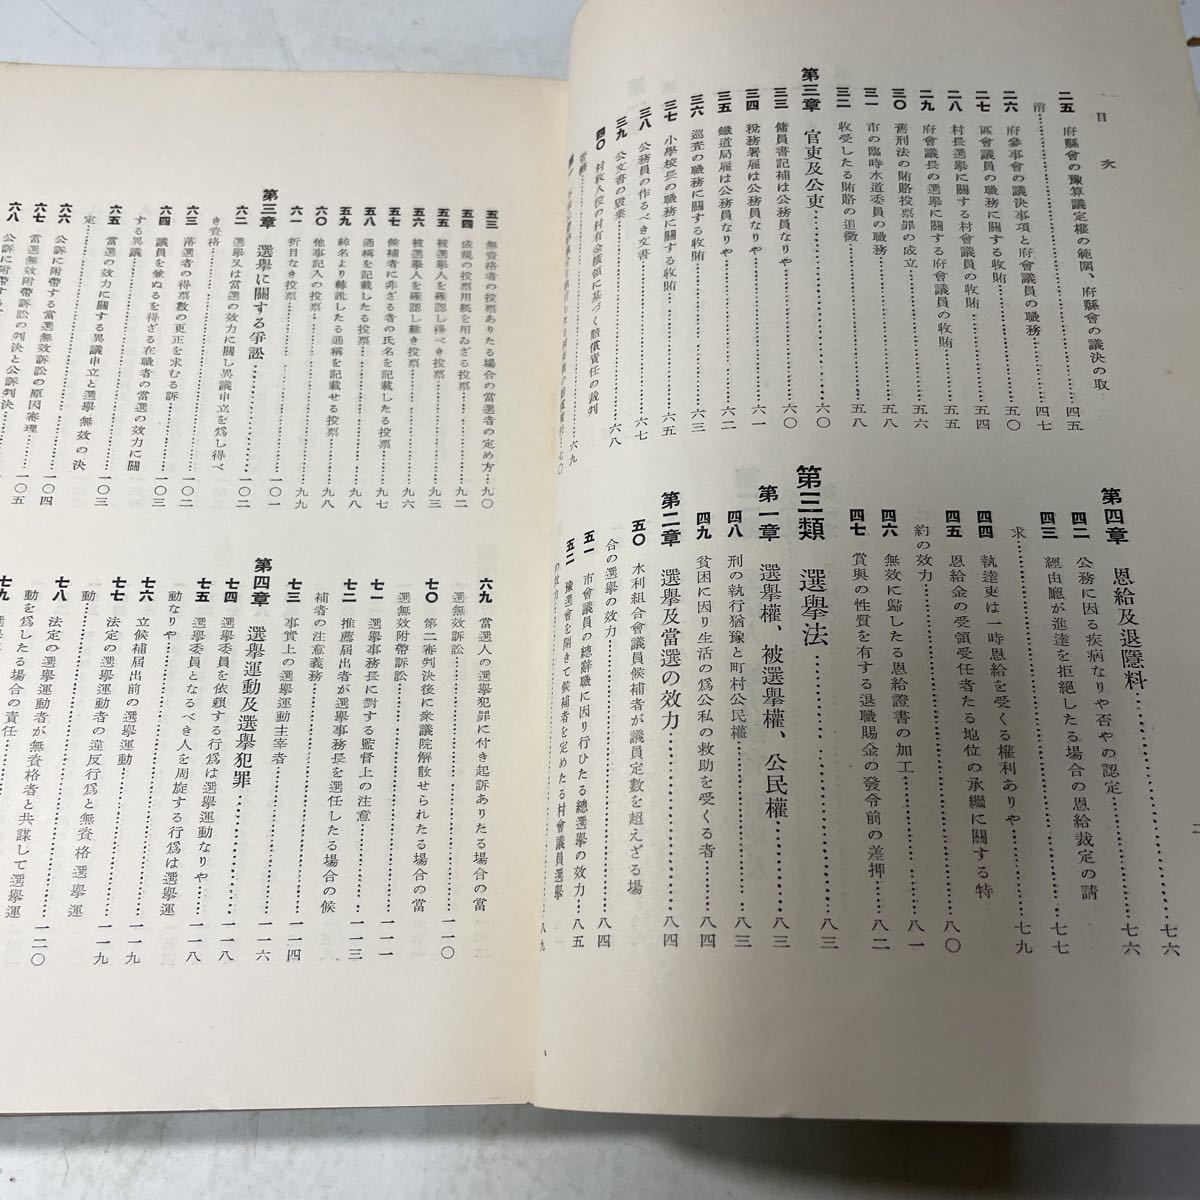 目次
二五 府縣會の豫算議定權の範圍、府縣會の議決の取
消……四七
二六 府參事會の議決事項と府會議員の職務……五〇
二七 區會議員の職務に關する收賄……五四
二八 村長選擧に關する村會議員の收賄……五四
二九 府會議長の選擧に關する府會議員の收賄……五六
三〇 舊刑法の賄賂投票罪の成立……五八
三一 市の臨時水道委員の職務……五八
三二 收受したる賄賂の追徵……五八
第三章 官吏及公吏……六〇
三三 傭員書記補は公務員なりや……六〇
三四 稅務署雇は公務員なりや……六一
三五 鐵道局雇は公務員なりや……六二
三六 巡査の職務に關する收賄……六三
三七 小學校長の職務に關する收賄……六五
三八 公務員の作るべき文書……六七
三九 公文書の毀棄……六八
四〇 村收入役の村有金橫領に基づく賠償責任の裁判
……六九
第四章 恩給及退隱料……七六
四二 公務に因る疾病なりや否やの認定……七六
四三 經由廳が進達を拒絕したる場合の恩給裁定の請
求……七七
四四 執達吏は一時恩給を受くる權利ありや……七九
四五 恩給金の受領受任者たる地位の承繼に關する特
約の效力……八〇
四六 無效に歸したる恩給證書の加工……八一
四七 賞與の性質を有する退職賜金の發令前の差押……八二
第三類 選擧法……八三
第一章 選擧權、被選擧權、公民權……八三
四八 刑の執行猶豫と町村公民權……八三
四九 貧困に因り生活の爲公私の救助を受くる者……八四
第二章 選擧及當選の效力……八四
五〇 水利組合會議員候補者が議員定數を超えざる場
合の選擧の效力……八四
五一 市會議員の總辭職に因り行ひたる總選擧の效力……八五
五二 豫選會を開きて候補者を定めたる村會議員選擧
の效力……八九
五三 無資格者の投票ありたる場合の當選者の定め方……九〇
五四 成規の投票用紙を用ゐざる投票……九二
五五 被選擧人を確認し得べき投票……九三
五六 被選擧人を確認し難き投票……九六
五七 候補者に非ざる者の氏名を記載したる投票……九七
五八 通稱を記載したる投票……九八
五九 綽名より轉訛したる通稱を記載せる投票……九八
六〇 他事記入の投票……九九
六一 折目なき投票……九九
第三章 選擧に關する爭訟……一〇二
六二 選擧又は當選の效力に關し異議申立を爲し得べ
き資格……一〇二
六三 落選者の得票數の更正を求むる訴……一〇三
六四 議員を兼ぬるを得ざる在職者の當選の效力に關
する異議……一〇三
六五 當選の效力に關する異議申立と選擧無效の決
定……一〇三
六六 公訴に附帶する當選無效訴訟の原因審理……一〇四
六七 當選無效附帶訴訟の判決と公訴判決……一〇五
六八
六九 當選人の選擧犯罪に付き起訴ありたる場合の當
選無效訴訟……
七〇 第二審判決後に衆議院解散せられたる場合の當
選無效附帶訴訟……一一〇
七一 選擧事務長に對する監督上の注意……一一一
七二 推薦屆出者が選擧事務長を選任したる場合の候
補者の注意義務……一一三
七三 事實上の選擧運動主宰者……一一四
第四章 選擧運動及選擧犯罪……一一六
七四 選擧委員を依賴する行爲は選擧運動なりや……一一八
七五 選擧委員となるべき人を周旋する行爲は選擧運
動なりや……一一八
七六 立候補屆出前の選擧運動……一一九
七七 法定の選擧運動者の違反行爲と無資格選擧運
動……一一九
七八 法定の選擧運動者が無資格者と共謀して選擧運
動を爲したる場合の責任……一二〇
七九